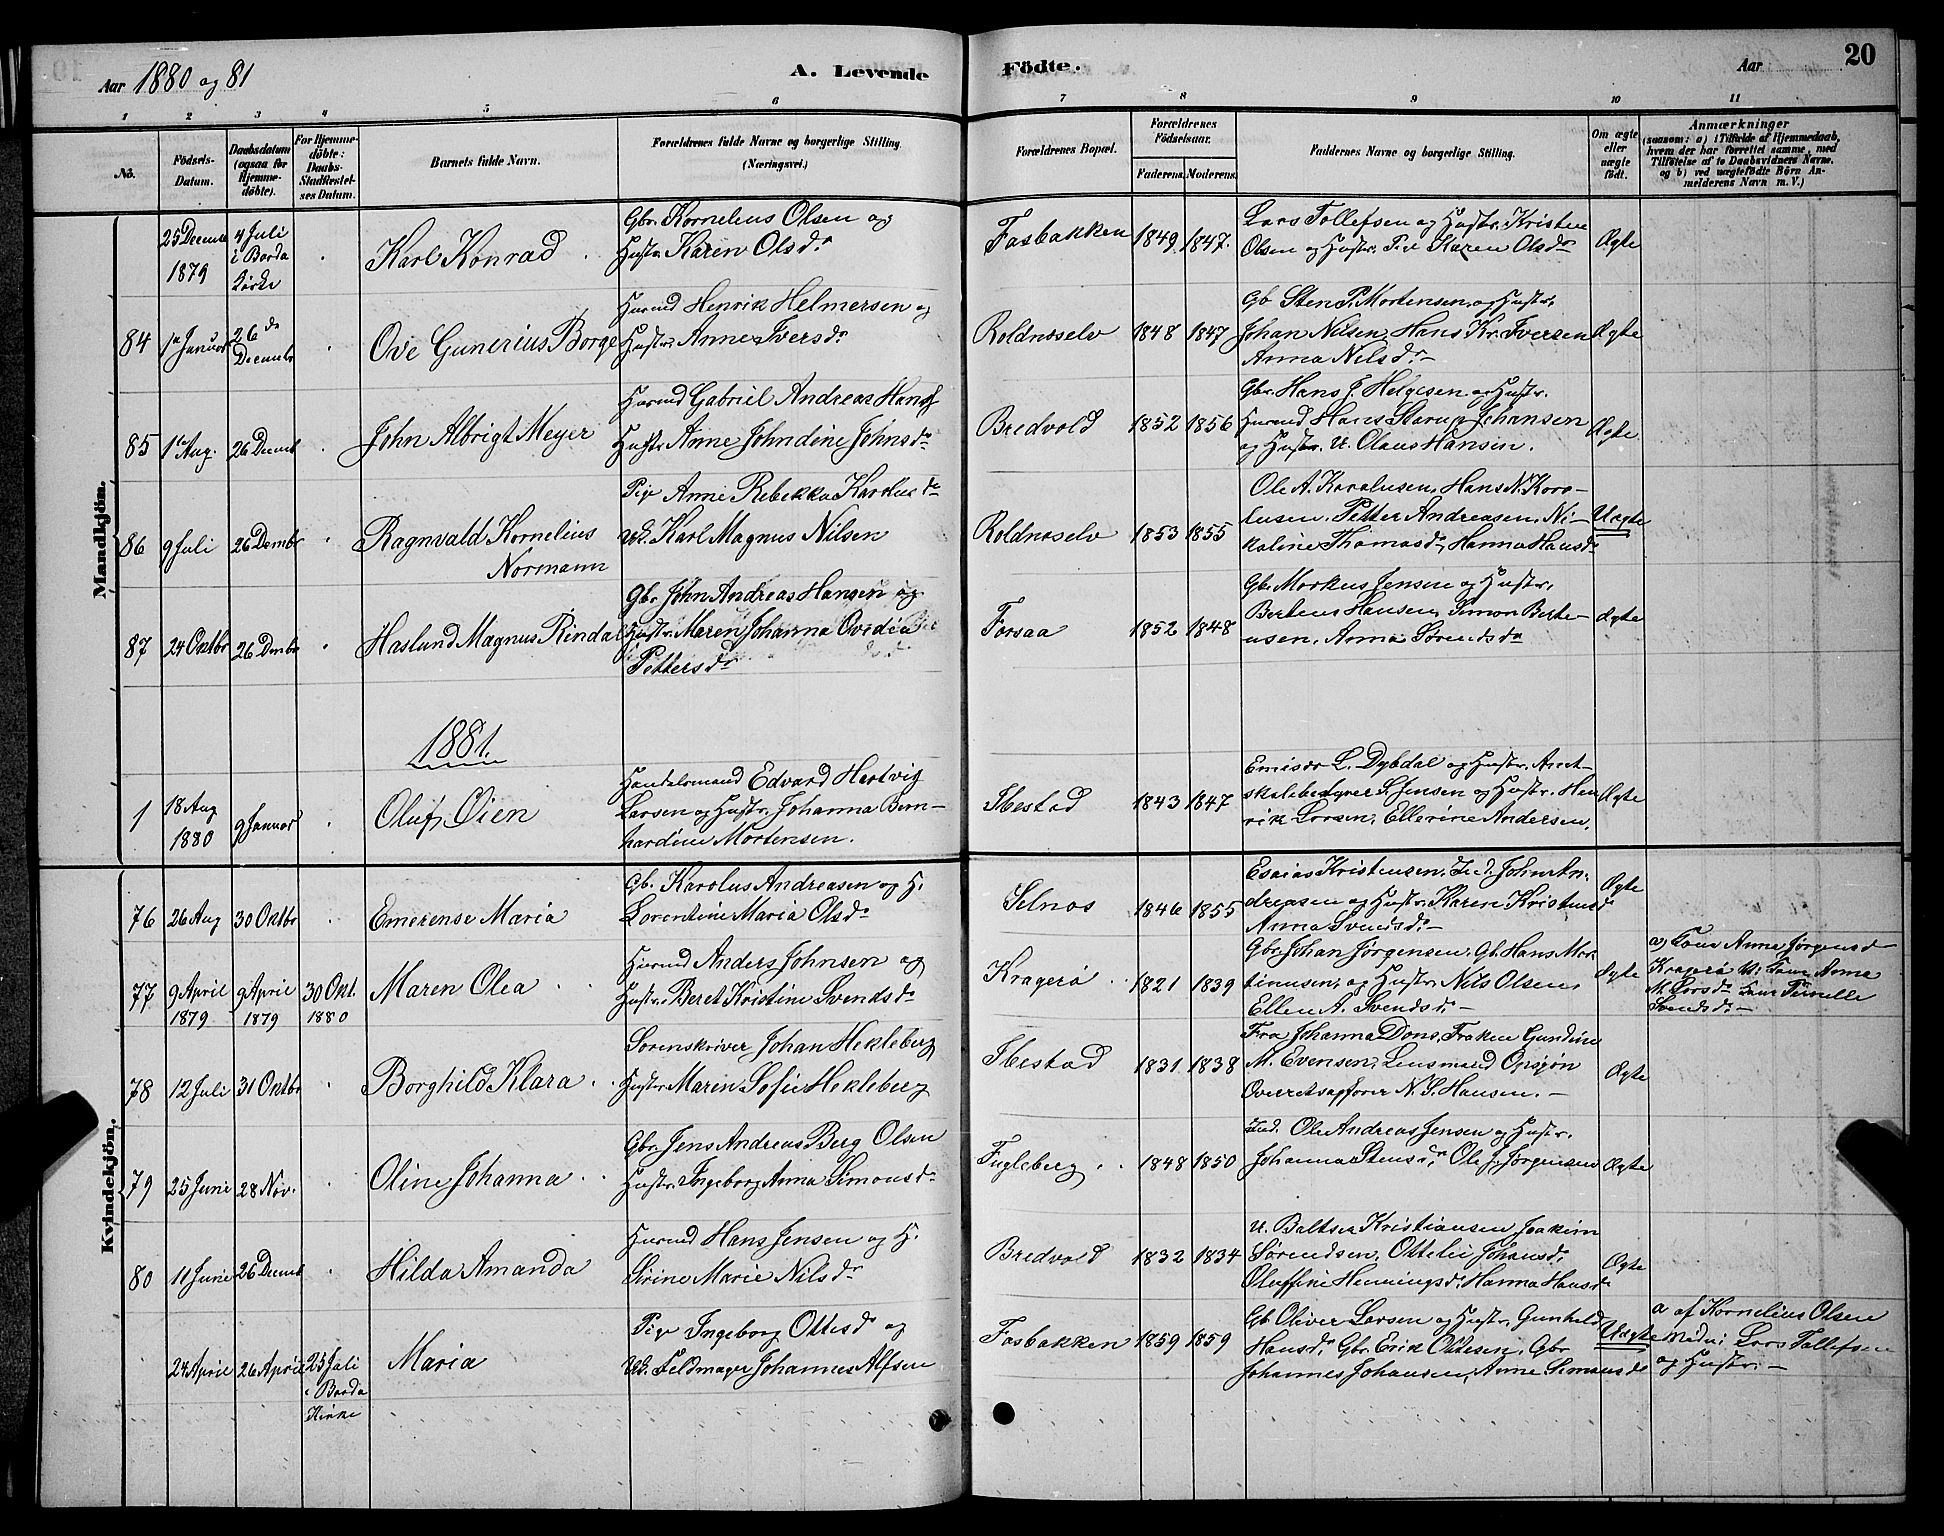 Aar 1880 og 81
A. Levende
Födte.
Aar
20
1 2 3 4 5 6 7 8 9 10 11
No.
Födsels-
Datum.
Daabsdatum
(ogsaa for
Hjemme-
döbte).
For Hjemme-
döbte:
Daabs-
Stadfæstel-
ses Datum.
Barnets fulde Navn.
Forældrenes fulde Navne og borgerlige Stilling
(Næringsvei.)
Forældrenes Bopæl.
Forældrenes
Födselsaar.
Faderens. Moderens.
Faddernes Navne og borgerlige Stilling.
Om ægte
eller
uægte
født.
Anmærkninger
(saasom: a) i Tilfælde af Hjemmedaab,
hvem der har forrettet samme, med
Tilföielse af to Daabsvidners Navne.
og b) ved uægtefödte Börn An-
melderens Navn m. V.)
Mandkjön.
25 Decemb
1879
4 Juli
i Bardo
Kirke
Karl Konrad
Gbr. Kornelius Olsen og
Hustr. Karen Olsdr
Fosbakken
1849 1847.
Lars Tollefsen og Hustr. Kristen
Olsen og Hustr. Pige Karen Olsdr
Ægte
84
1ste Januar
26de
Decembr
Ove Gunerius Borge
Husmd Henrik Helmersen og
Hustr. Anne Iversdr
Roldnæselv
1848 1847
Gb. Sten P. Mortensen og Hustr.
Johan Nilsen, Hans Kr. Iversen
Anna Nilsdr
Ægte
85
1ste Aug.
26 Decemb
John Albrigt Meyer
Husmd Gabriel Andreas Hans
Hustr. Anne Johndine Johnsdr
Bredvold
1852 1856
Gbr. Hans J. Helgesen og Hustr.
Husmd Hans Starup Johansen
og Hustr. U. Olaus Hansen.
Ægte
86
9 Juli
26 Dembr
Ragnvald Kornelius
Normann
Pige Anne Rebekka Karolusdr
Uk. Karl Magnus Nilsen
Roldnæselv
1853 1855
Ole A. Karolusen, Hans N. Karo-
lusen, Petter Andreasen, Ni-
koline Thomasdr, Hanna Hansdr
Uægte
87
24 Oktbr
26 Dmbr
Haslund Magnus Rindal
Gbr. John Andreas Hansen og
Hustr. Maren Johanna Ovedia
Pettersdr
Forsaa
1852 1848
Gbr. Markus Jensen og Hustr.
Berteus Hansen, Simon Berte-
usen, Anna Sørensdr
Ægte
1881.
1
18 Aug
1880
9 Januar
Oluf Øien
Handelsmand Edvard Hertvig
Larsen og Hustr. Johanna Bern-
hardine Mortensen.
Ibestad
1843 1847
L. Dybdal og Hustr. Amt-
skolebestyrer S. Jensen og Hustr. Hen
rik Larsen, Ellerine Andersen.
Ægte
Kvindekjön.
76
26 Aug
30 Oktbr
Emerense Maria
Gb. Karolus Andreasen og H.
Lorentine Maria Olsdr
Selnæs
1846 1855
Esaias Kristensen, Ind. John An-
dreasen og Hustr. Karen Kristensdr
Anna Svendsdr
Ægte
77
9 April
1879
9 April
1879
30 Okt.
1880
Maren Olea
Husmd Anders Johnsen og
Hustr. Beret Kristine Svendsdr
Kragerø
1821 1839
Gbr. Johan Jørgensen, Gb. Hans Mor-
tinusen, og Hustr. Nils Olsen,
Ellen A. Svendsdr
Ægte
a) Kone Anne Jørgensd
Kragerø V: Kone Anna
M. Larsdr Kone Pernelle
Svendsdr
78
12 Juli
31 Oktbr
Borghild Klara
Sorenskriver Johan Hekleberg
Hustr. Maren Sofie Hekleberg
Ibestad
1831 1838
Fru Johanna Dons, Frøken Gundine
M. Evensen, Lensmand Opsjøn
Overretssagfører N. S. Hansen.
Ægte
79
25 Juni
28 Nov.
Oline Johanna
Gbr. Jens Andreas Berg Olsen
Hustr. Ingeborg Anna Simonsdr
Fugleberg
1848 1850
Ind. Ole Andreas Jensen og Hustr.
Johanna Stensdr, Ole J. Jørgensen
Ægte
80
11 Juni
26 Decemb
Hilda Amanda
Husmd Hans Jensen og H.
Sirine Marie Nilsdr
Bredvold
1832 1834
U. Baltser Kristiansen, Joakim
Sørendsen, Ottelie Johansdr,
Oluffine Henningsdr, Hanna Hansdr
Ægte
24 April
26 April
25 Juli
i Bardo
Kirke
Maria
Pige Ingeborg Ottesdr og
Uk. Feldmager Johannes Alfsen
Fosbakken
1859 1859
Gb. Oliver Larsen og Hustr. Gunhild
Hansdr, Gbr. Erik Ottesen, Gbr.
Johannes Johansen, Anne Simonsdr
Uægte
a af Kornelius Olsen
Lars Tollefsen
og Hustr.